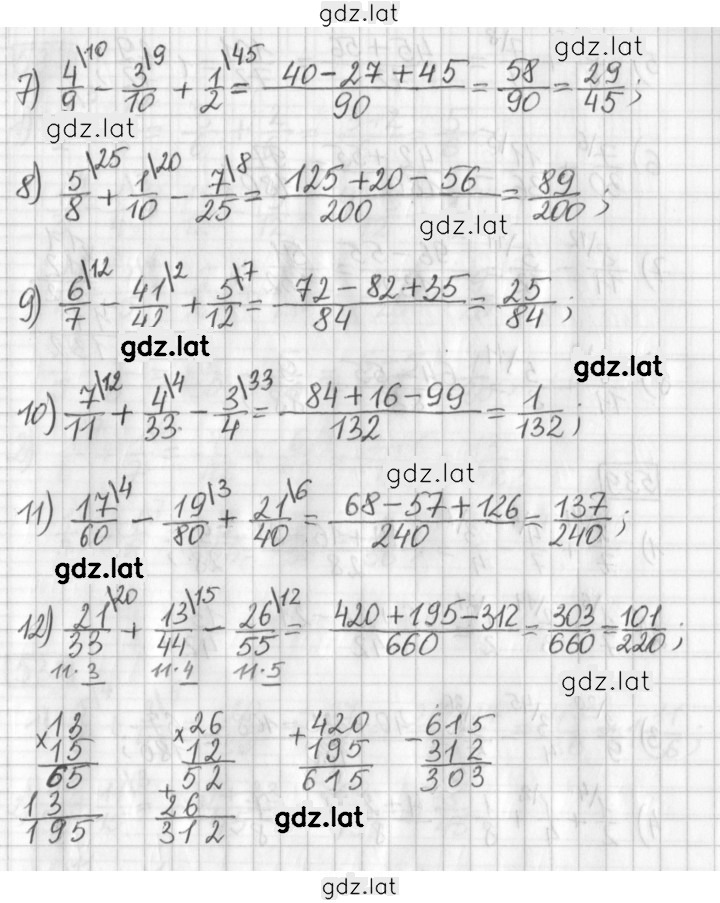 gdz.lat
7) 4/9\10 − 3/10\9 + 1/2\45 = (40−27+45)/90 = 58/90 = 29/45;
gdz.lat
gdz.lat
8) 5/8\25 + 1/10\20 − 7/25\8 = (125+20−56)/200 = 89/200;
gdz.lat
9) 6/7\12 − 41/42\2 + 5/12\7 = (72−82+35)/84 = 25/84;
gdz.lat
gdz.lat
10) 7/11\12 + 4/33\4 − 3/4\33 = (84+16−99)/132 = 1/132;
gdz.lat
11) 17/60\4 − 19/80\3 + 21/40\6 = (68−57+126)/240 = 137/240;
gdz.lat
12) 21/33\20 + 13/44\15 − 26/55\12 = (420+195−312)/660 = 303/660 = 101/220;
11·3 11·4 11·5
gdz.lat
×13 ×26 +420 −615
15 12 195 312
65 +52 615 303
13 26
195 312
gdz.lat
gdz.lat